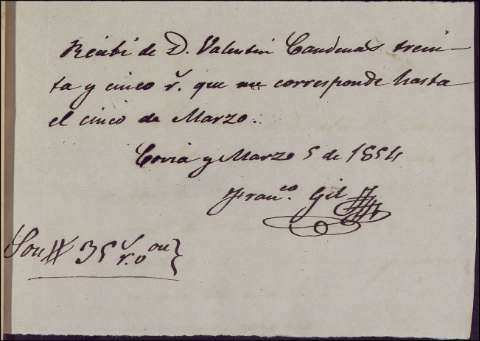 Recibí de D. Valentin Cardenas trein-
ta y cinco r.s que me corresponde hasta
el cinco de Marzo.
Coria y Marzo 5 de 1854
Fran.co Gil
Son # 35 r.s v.on